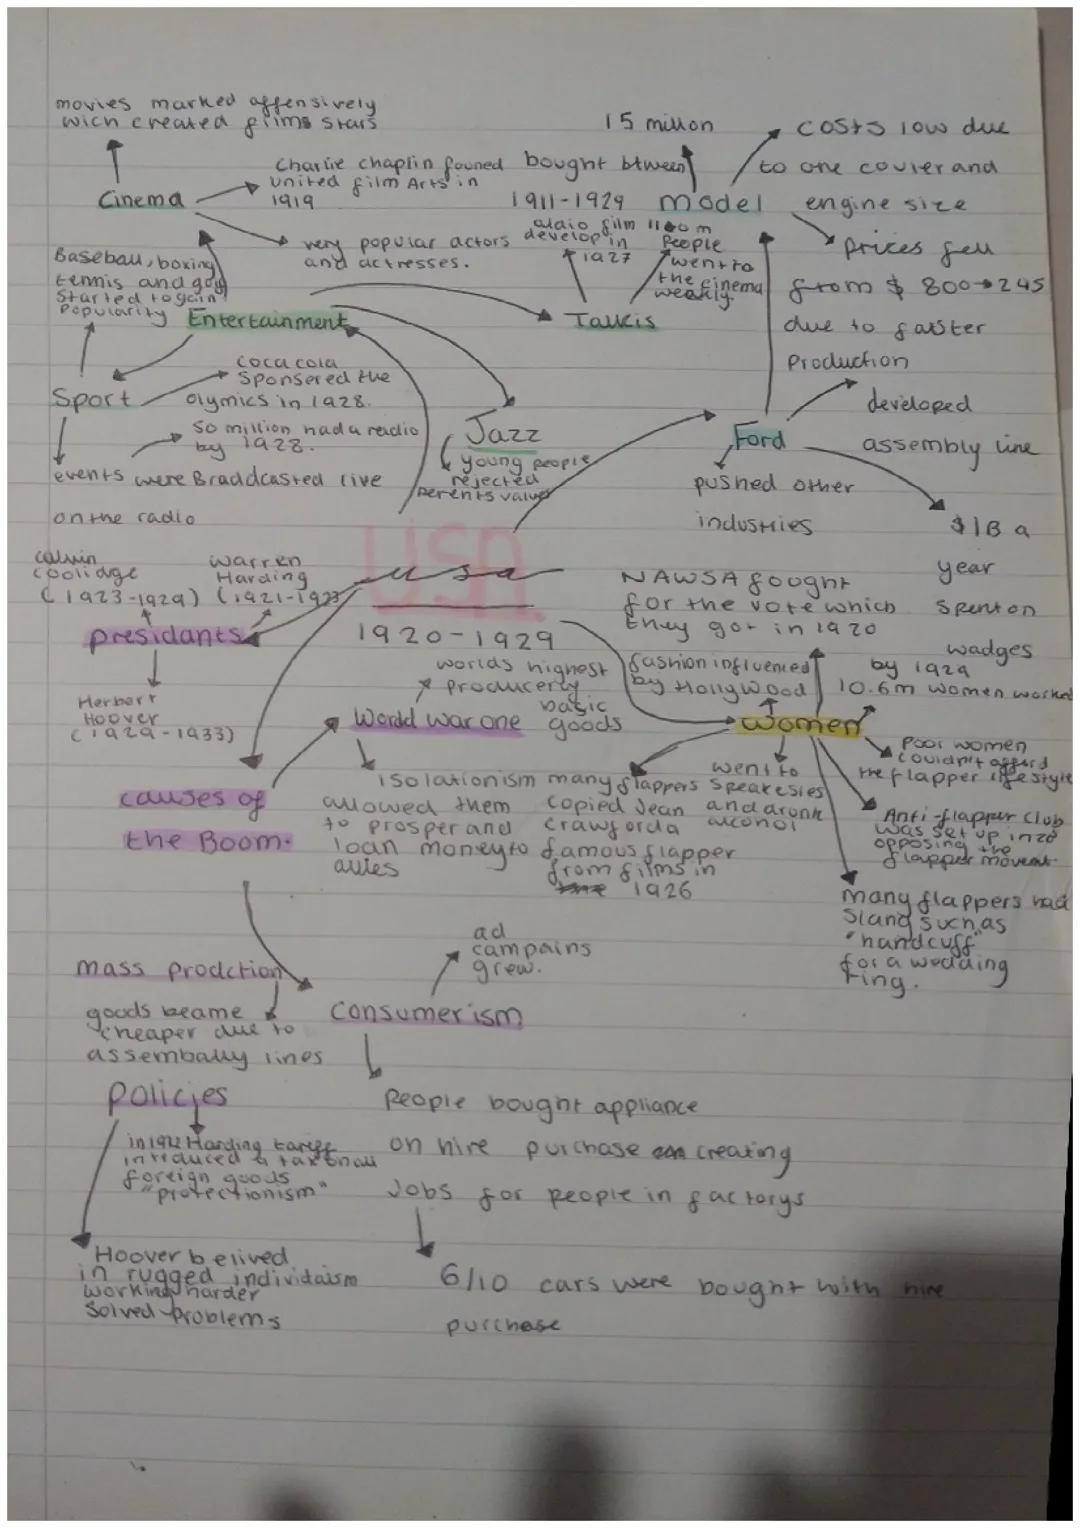 movies marked offensively
wich created films stars
Cinema
Charlie chaplin founed
united film Arts in
1919
very popular actors
and actresses.
15 million
bought btween
1911-1929
model
costs low due
to one couler and
engine size
prices fell
from $ 800→295
due to faster
production
audio film
develop in
1927
1100m
People
went to
the cinema
weakly.
Talkis
Baseball, boxing
tennis and golf
started to gain
Popularity
Entertainment
Sport
coca cola
sponsered the
olymics in 1928.
50 million had a readio
by 1928.
events were Braddcasted live
on the radio
Jazz
young people
rejected
Perents values
Ford
developed
assembly line
pushed other
industries
$1B a
year
spent on
wadges
USA
usa
1920-1929
calvin
coolidge
(1923-1929)
warren
Harding
(1921-1923)
presidants
Herbert
Hoover
(1929-1933)
NAWSA fought
for the vote which
they got in 1920
fashion influenced
by Hollywood
by 1929
10.6m women worked
women
Poor women
couldn't afford
the flapper life style
Anti-flapper club
was set up in 20
opposing the
flapper movent.
many flappers had
slang such as
"handcuff"
for a wedding
ring.
went to
speakesies
and dronk
alcohol
many flappers
copied Jean
crawford a
famous flapper
from films in
1926
worlds highest
producerly
basic
goods
World war one
isolationism
allowed them
to prosper and
loan money to
allies
causes of
the Boom.
mass prodction
goods beame
cheaper due to
assembally lines
ad
campains
grew.
consumerism
People bought appliance
on hire purchase creating
Jobs for people in factorys
6/10 cars were bought with hire
purchase
policies
in 1922 Harding tareff
introduced a tax on all
foreign goods
"protectionism"
Hoover belived
in rugged individaism
working harder
solved problems